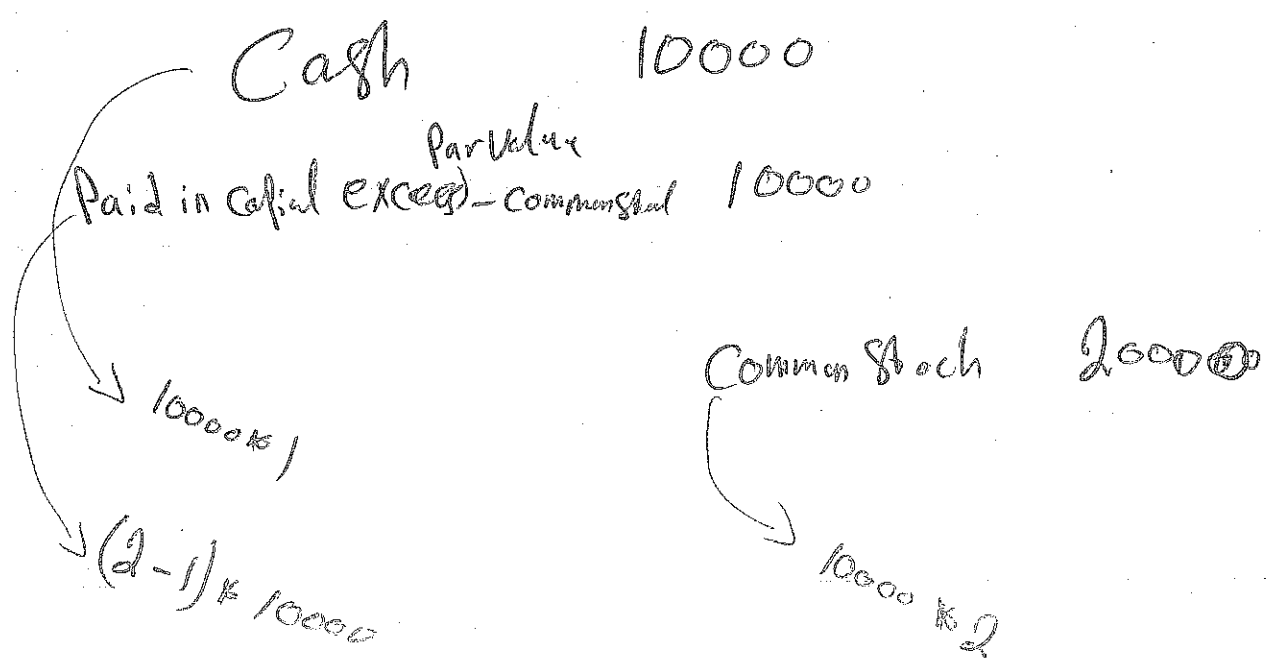 Cash 10000
Par Value
Paid in Capial exceed - Common 10000
Common Stoch 20000
10000 * 1
(2-1) * 10000
10000 * 2